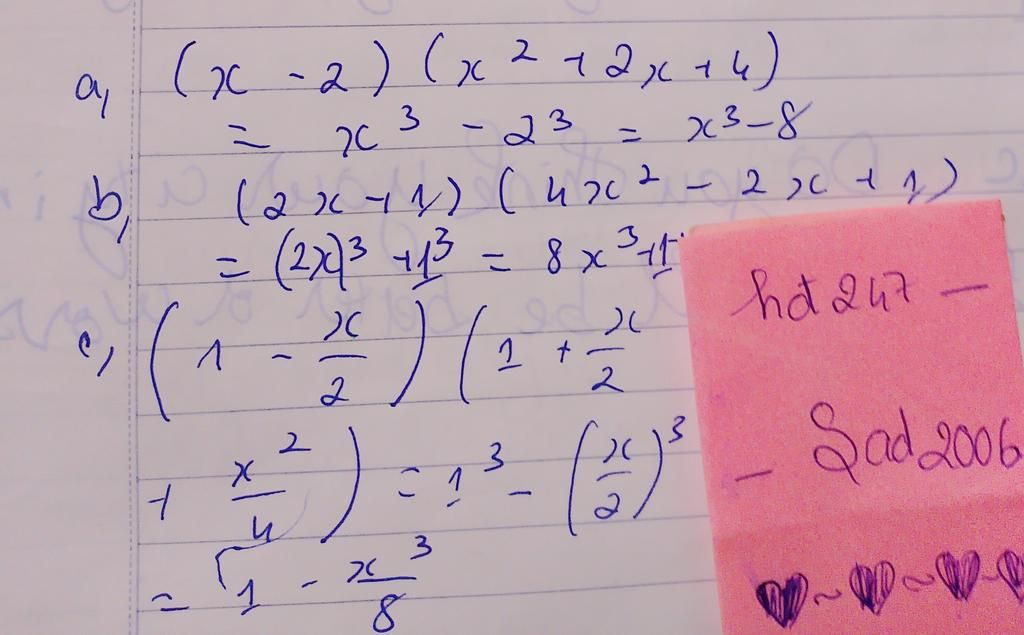 a, (x - 2) (x² + 2x + 4)
= x³ - 2³ = x³ - 8
b, (2x + 1) (4x² - 2x + 1)
= (2x)³ + 1³ = 8x³ + 1
c, (1 - x/2) (1 + x/2
+ x²/4) = 1³ - (x/2)³
= 1 - x³/8
hdt 247 —
— Sad 2006
♥ ~ ♥ ~ ♥ ~ ♥